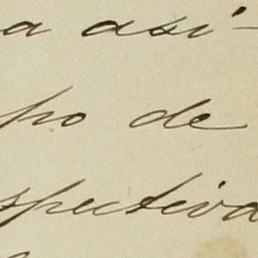 a así-
po de
spectiva